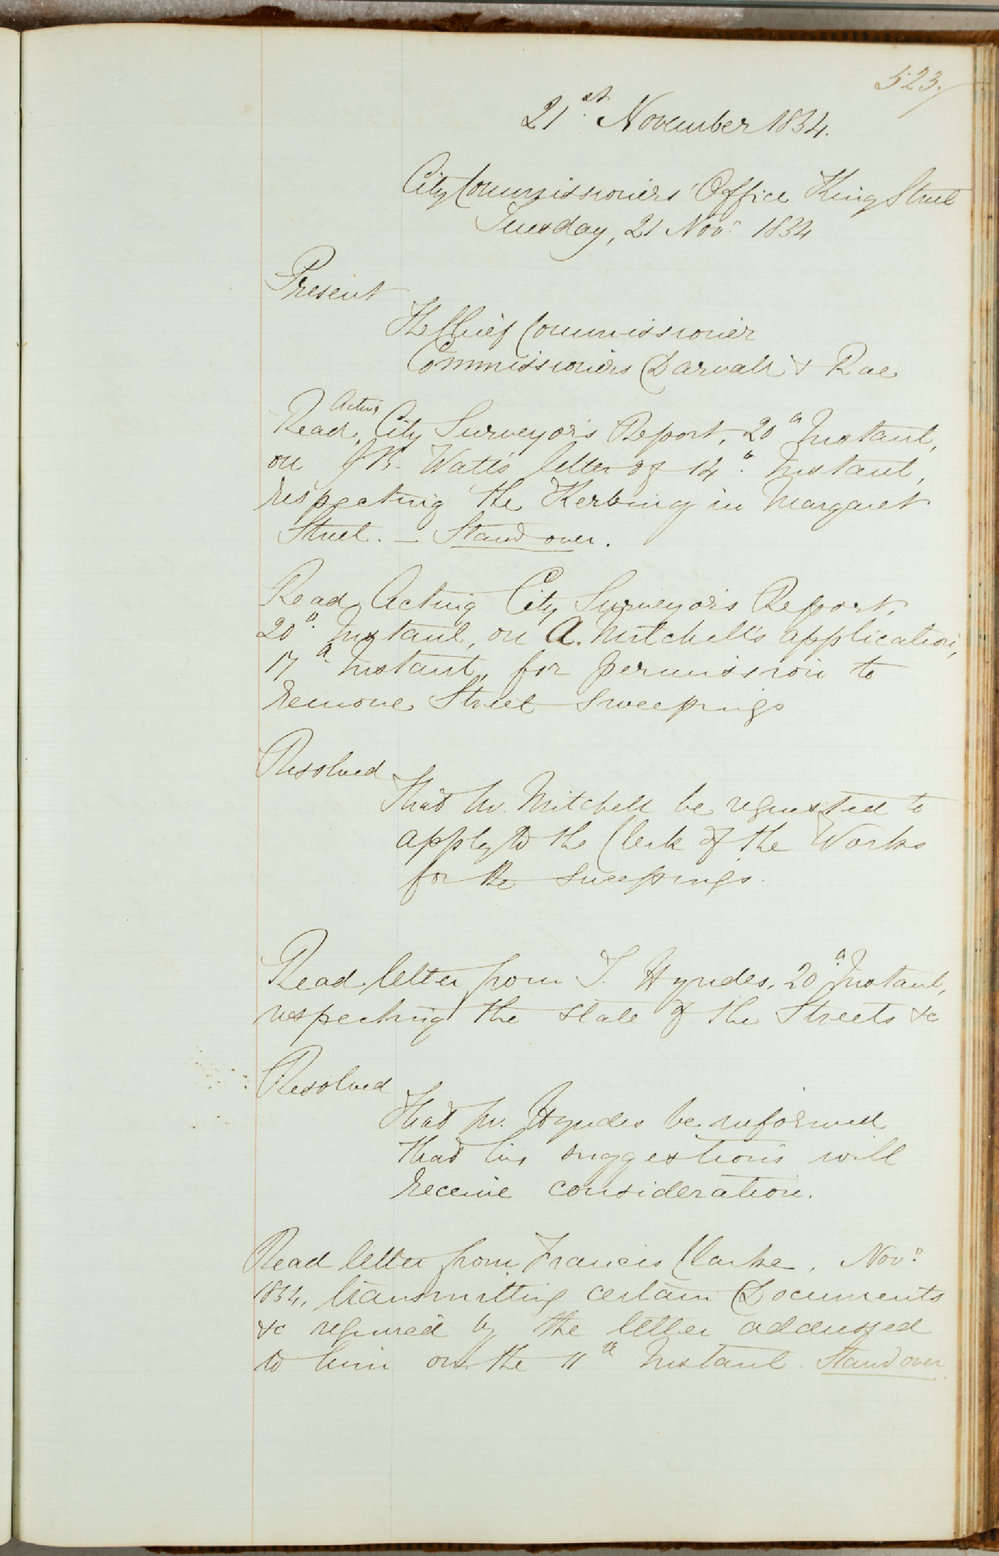 523.
21st. November 1834.
City Commissioners' Office King Street
Tuesday, 21 Novr. 1834
Present
The Chief Commissioner
Commissioners Darvall & Rae
Read Acting City Surveyor's Report, 20th Instant,
on J. B. Watt's letter of 14th. Instant,
respecting the Kerbing in Margaret
Street. — Stand over.
Read Acting City Surveyor's Report,
20th. Instant, on A. Mitchell's application,
17th. Instant, for permission to
remove Street Sweepings
Resolved
That Mr. Mitchell be requested to
apply to the Clerk of the Works
for the sweepings.
Read letter from T. Hyndes, 20th. Instant,
respecting the state of the Streets &c
Resolved
That Mr. Hyndes be informed
that his suggestions will
receive consideration.
Read letter from Francis Clarke, Novr.
1834, transmitting certain Documents
&c required by the letter addressed
to him on the 11th Instant. Stand over.